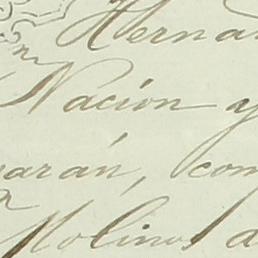 Herna
Nación y
arán, com
Molinos d